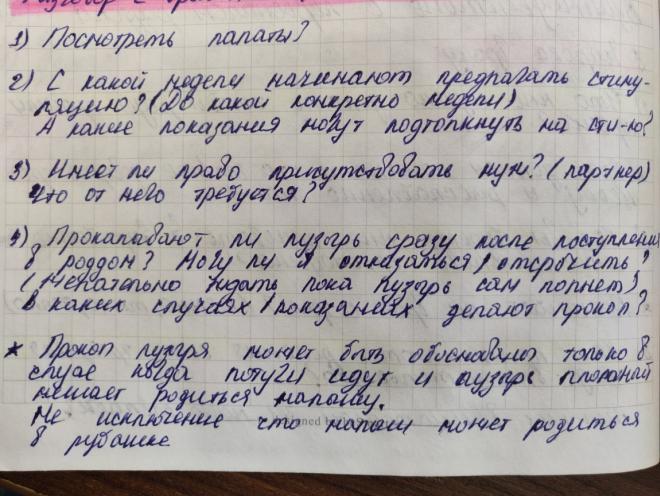 Разговор с
1) Посмотреть палаты?
2) С какой недели начинают предлагать стиму-
ляцию? (До какой конкретно недели)
А какие показания могут подтолкнуть на сти-ю?
3) Имеет ли право присутствовать муж? (партнер)
Что от него требуется?
4) Прокалывают ли пузырь сразу после поступления
в роддом? Могу ли я отказаться / отсрочить?
(Желательно ждать пока пузырь сам лопнет)
В каких случаях / показаниях делают прокол?
* Прокол пузыря может быть обоснованы только в
случае когда потуги идут и пузырь плотный
мешает родиться малышу.
Не исключение что малыш может родиться
в рубашке